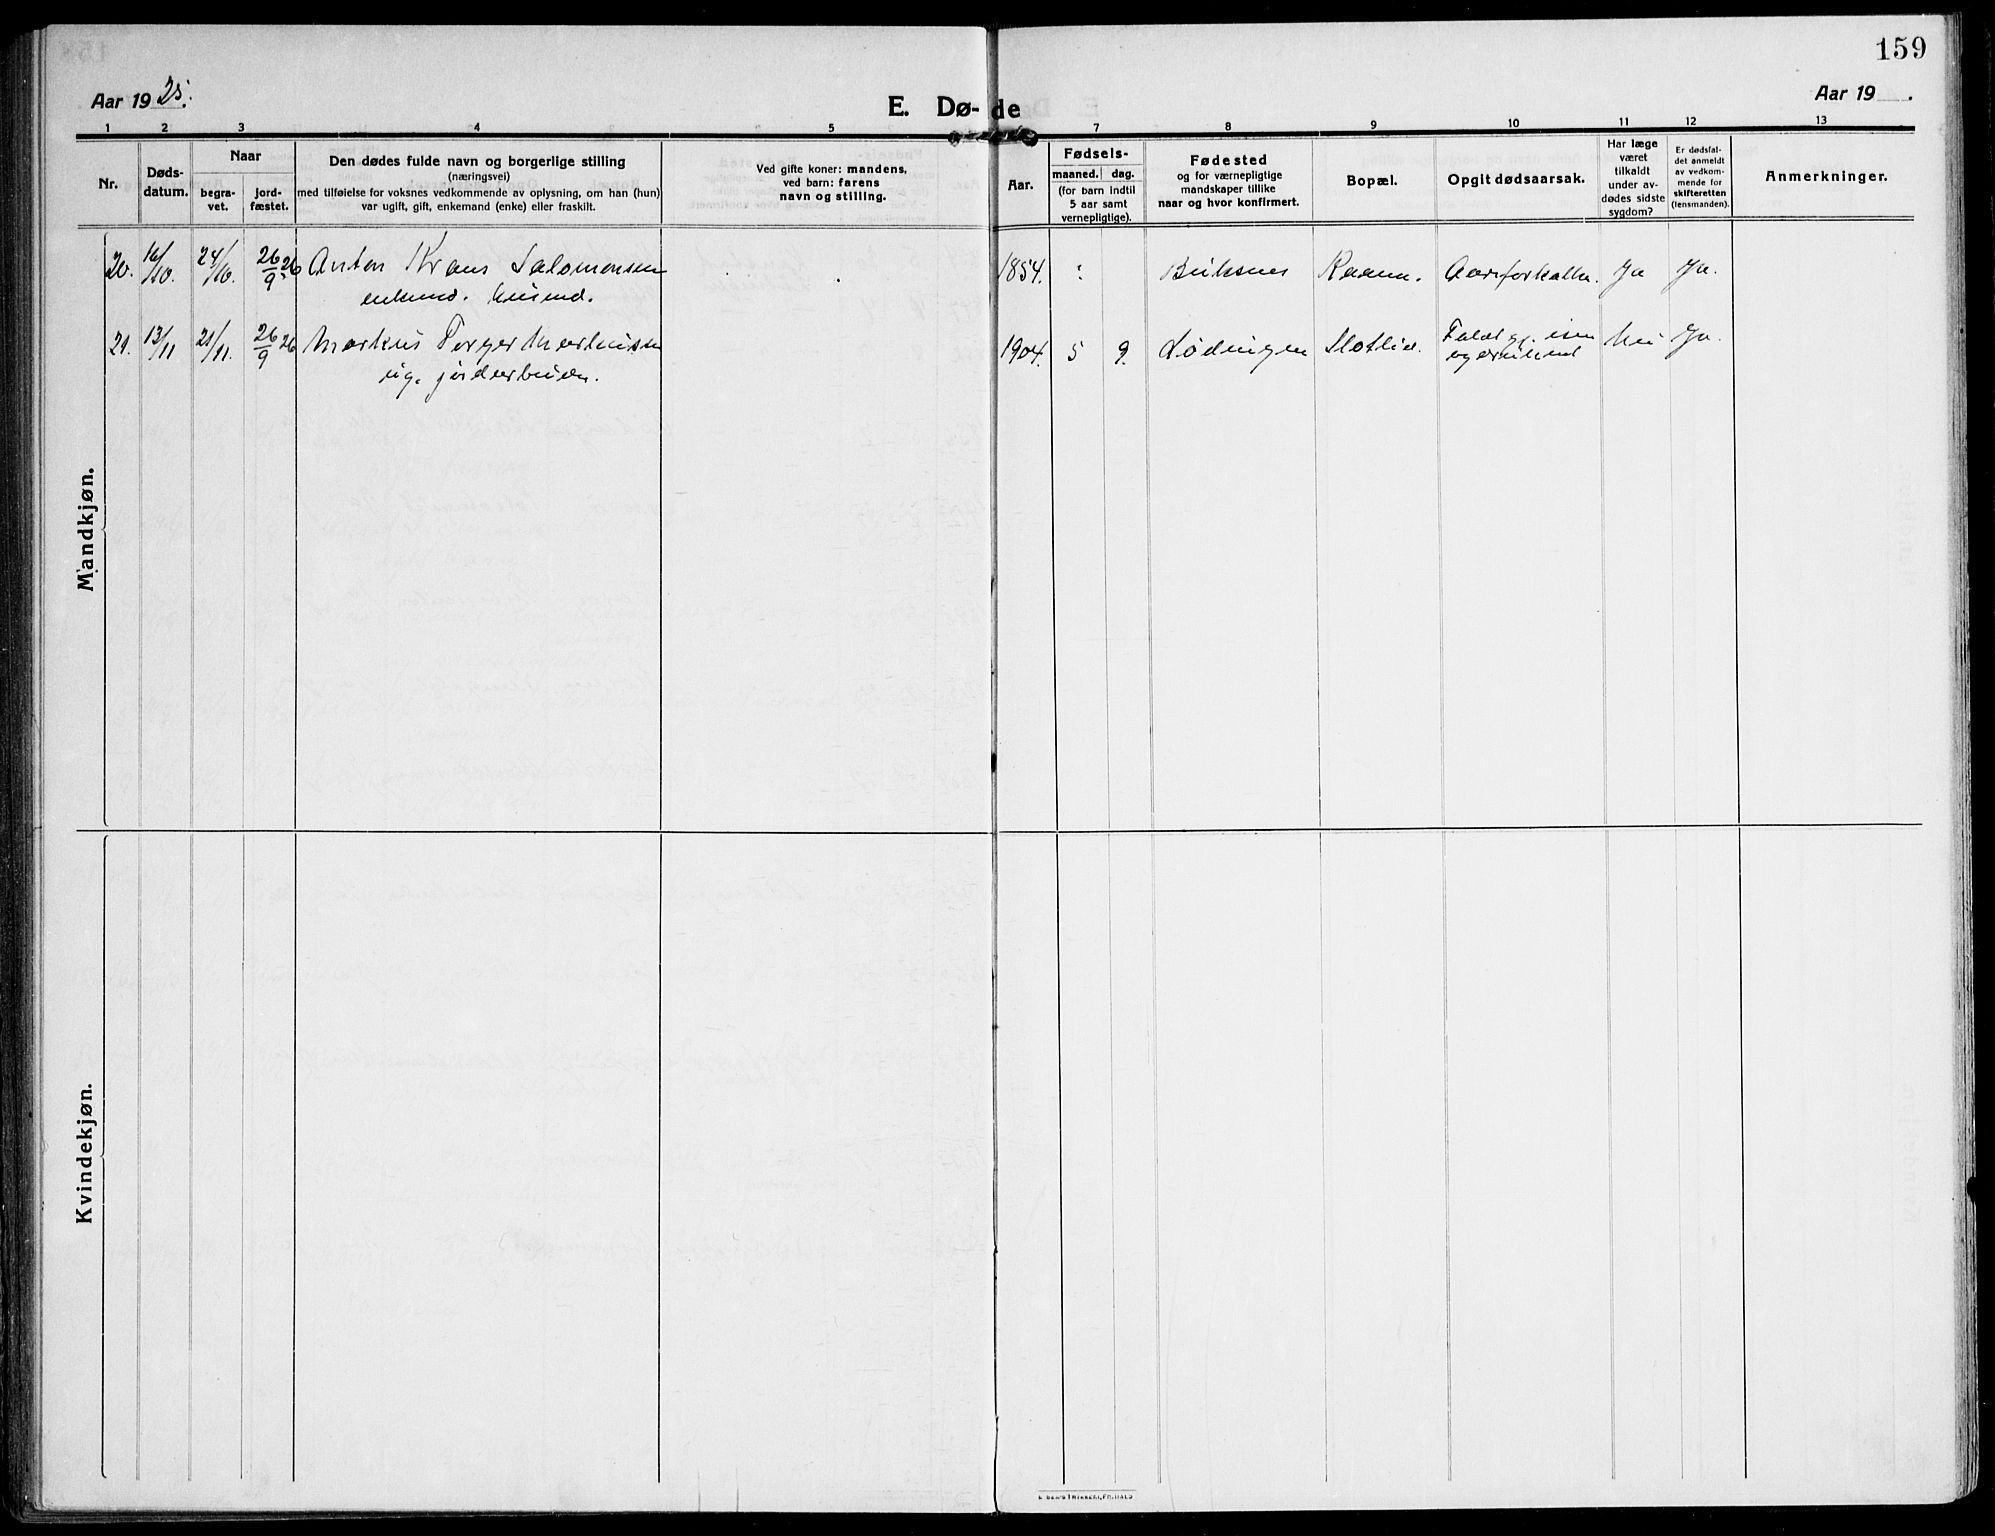 159
Aar 1925.
E. Dø-de
Aar 19 .
1 2 3 4 5 7 8 9 10 11 12 13
Nr.
Døds-
datum.
Naar
begra-
vet.
jord-
fæstet.
Den dødes fulde navn og borgerlige stilling
(næringsvei)
med tilføielse for voksnes vedkommende av oplysning, om han (hun)
var ugift, gift, enkemand (enke) eller fraskilt.
Ved gifte koner: mandens,
ved barn: farens
navn og stilling.
Aar.
Fødsels-
maaned. dag.
(for barn indtil
5 aar samt
vernepligtige).
Fødested
og for værnepligtige
mandskaper tillike
naar og hvor konfirmert.
Bopæl.
Opgit dødsaarsak.
Har læge
været
tilkaldt
under av-
dødes sidste
sygdom?
Er dødsfal-
det anmeldt
av vedkom-
mende for
skifteretten
(lensmanden).
Anmerkninger.
Mandkjøn.
20. 16/10. 24/10. 26/9 26 Anton Krans Salomonsen 1854. Buksnes Raana. Aareforkalkn. Ja Ja.
enkemd. husmd.
21. 13/11 21/11. 26/9 26 Markus Torger Markussen 1904. 5 9. Lødingen Slotlid. Faldt gj. isen Nei Ja.
og druknet
ug. jordarbeider.
Kvindekjøn.